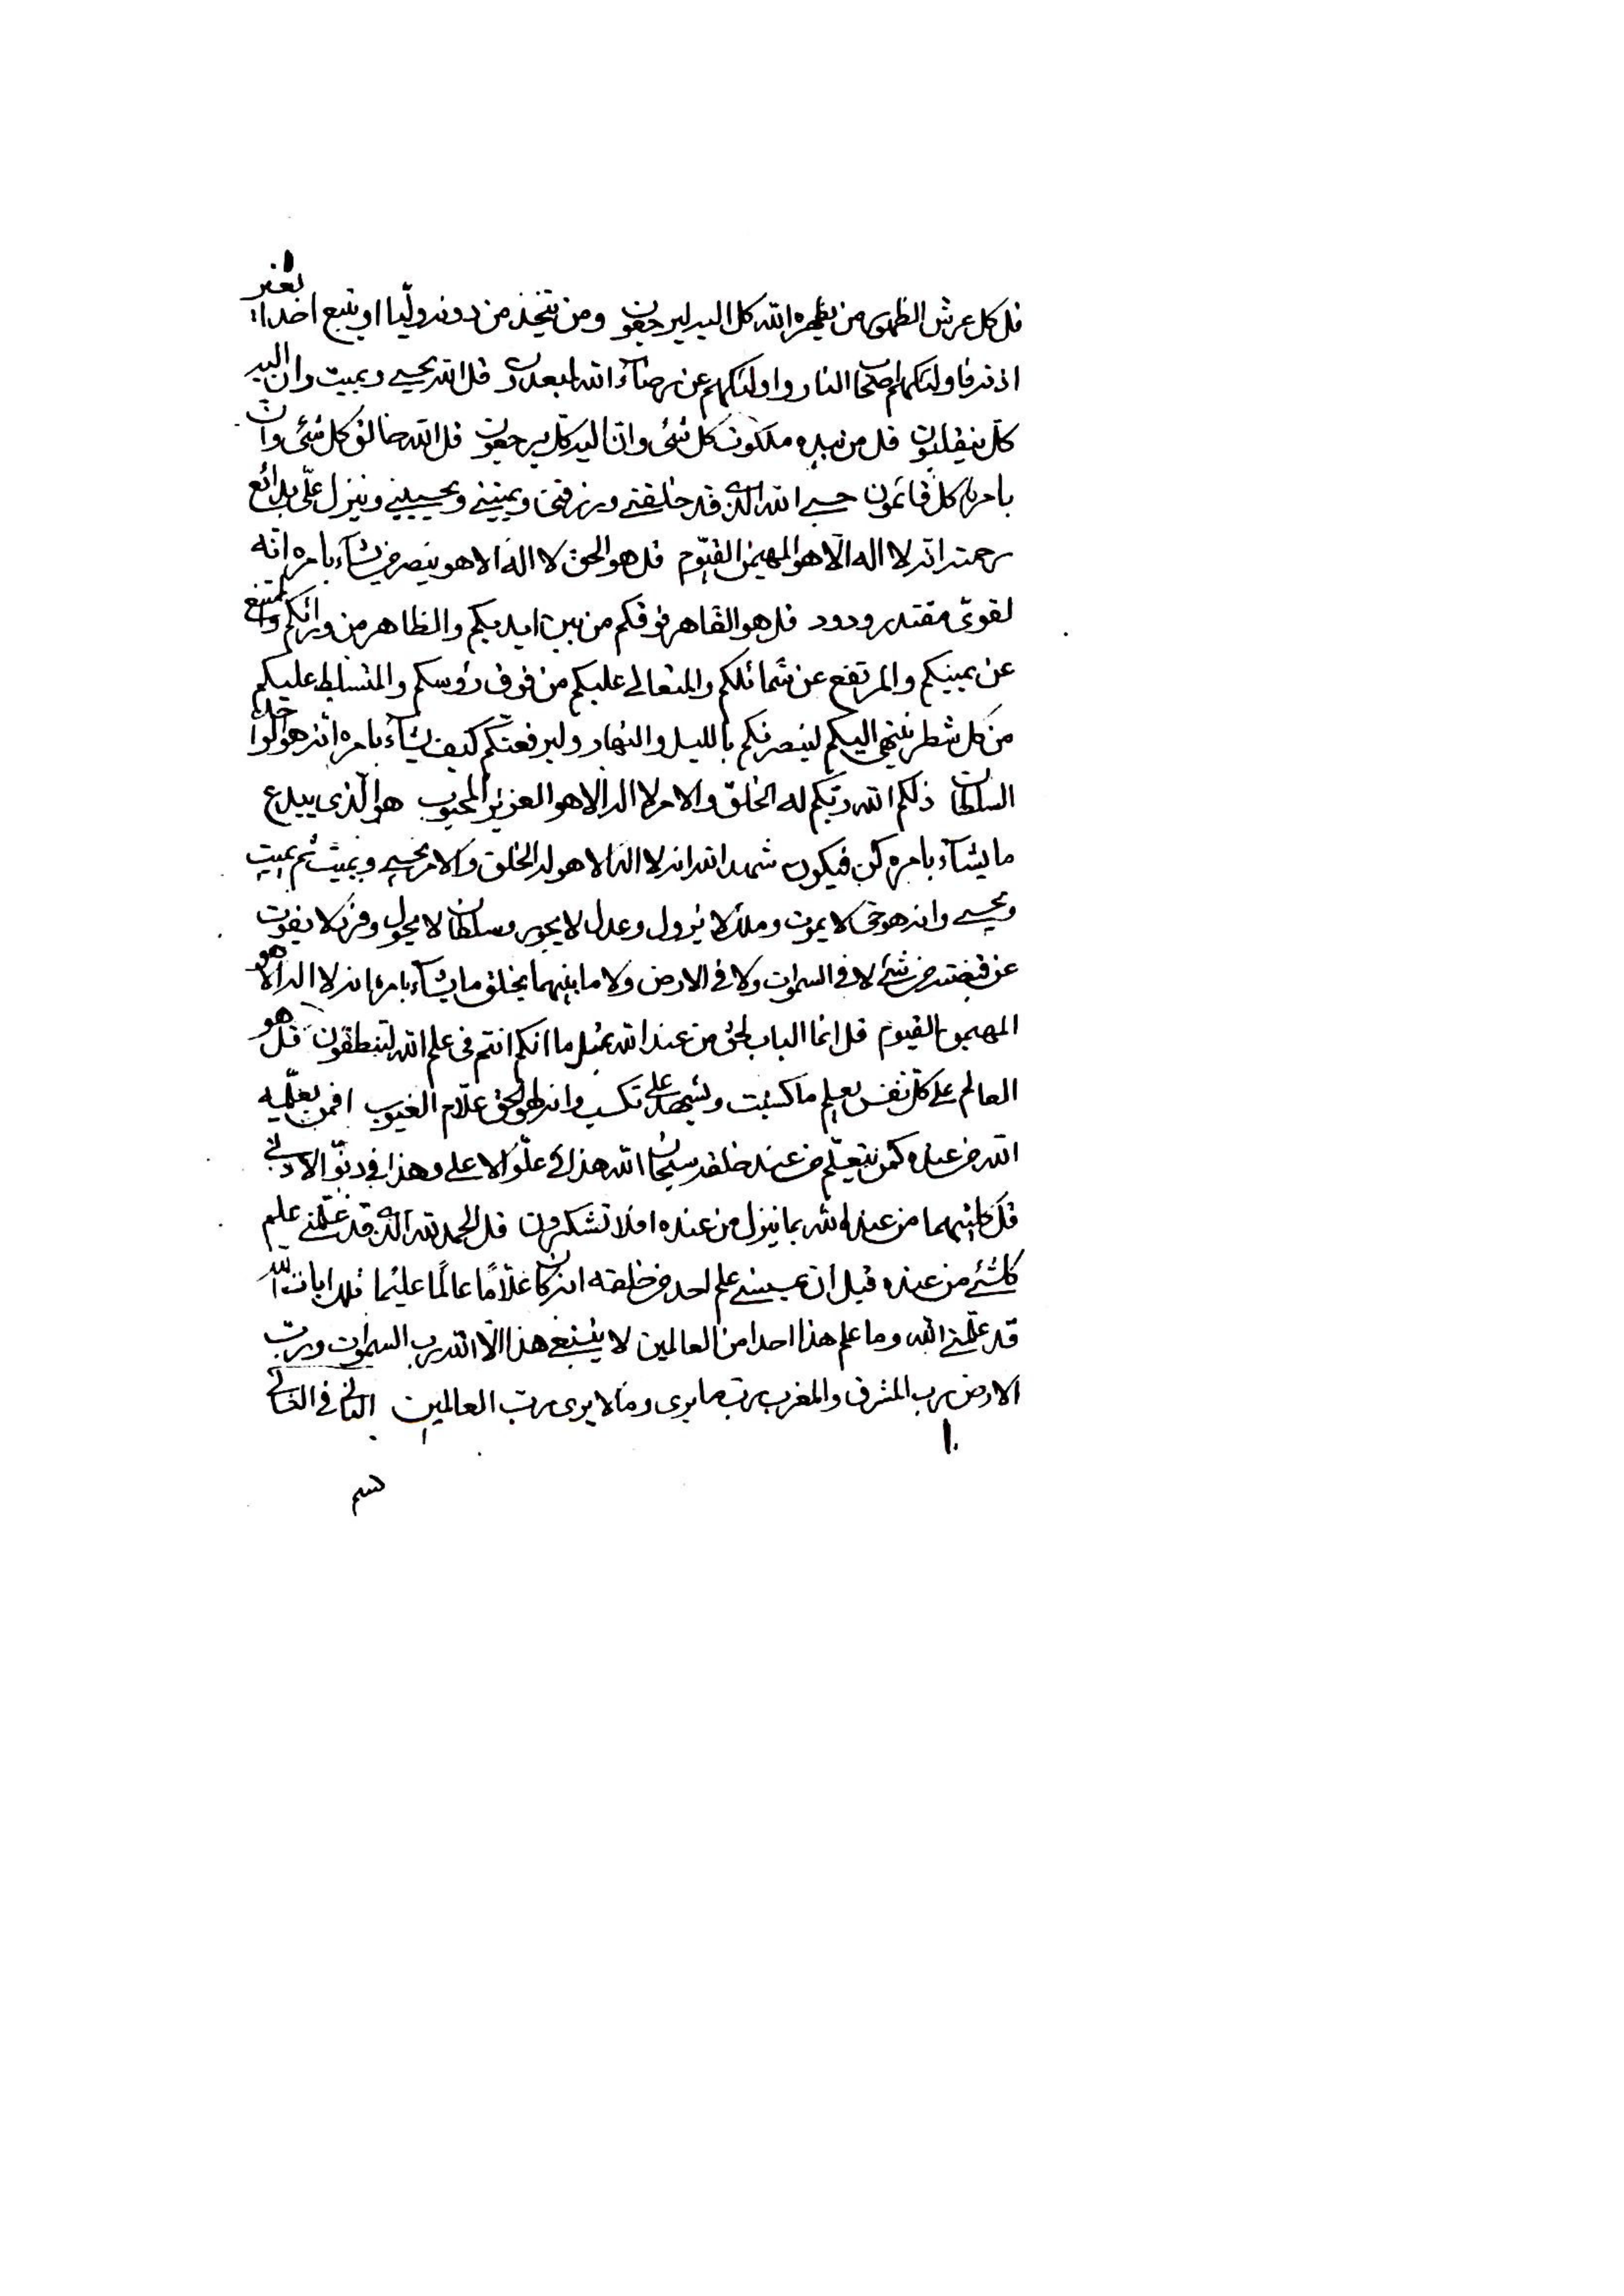 قل كل عرش الظهور من يظهره الله كل اليه ليرجعون ومن يتخذ من دونه وليّا او يتبع احدا بغير
اذنه فاولئك هم اصحاب النار واولئك هم عن رضاء الله لمبعدون قل الله يحيى ويميت وان اليه
كل ينقلبون قل من بيده ملكوت كل شئ وانّ اليه كل يرجعون قل الله خالق كل شئ وان
بامره كل قائمون حسبى الله الذى قد خلقنى ورزقنى ويميتنى ويحيينى وينزل علىّ بدائع
رحمته انه لا اله الّا هو المهيمن القيّوم قل هو الحق لا اله الا هو ينصر من يشآء بامره انّه
لقوىّ مقتدر ودود قل هو القاهر فوقكم من بين ايديكم والظاهر من ورائكم والممتنع
عن يمينكم والمرتفع عن شمائلكم والمتعالى عليكم من فوق رؤسكم والمتسلط عليكم
من كل شطر ينتهى اليكم لينصرنكم بالليل والنهار وليرفعنّكم كيف يشآء بامره انّه هو الواحد
السلطان ذلكم الله ربّكم له الخلق والامر لا اله الا هو العزيز المحبوب هو الّذى يبدع
ما يشآء بامره كن فيكون شهد الله انه لا اله الا هو له الخلق والامر يحيى ويميت ثم يميت
ويحيى وانه هو حىّ لا يموت وملك لا يزول وعدل لا يجور وسلطان لا يحول وفرد لا يفوت
عن قبضته من شئ لا فى السموات ولا فى الارض ولا ما بينهما يخلق ما يشآء بامره انه لا اله الا هو
المهيمن القيوم قل انما الباب لحق من عند الله بمثل ما انكم انتم فى علم الله لتنطقون قل هو
العالم على كلّ نفس يعلم ما كسبت ويشهد على تكسب وانه لهو الحق علّام الغيوب افمن يعلّمه
الله من عنده كمن يتعلّم من عند خلقه سبحان الله هذا فى علوّ الاعلى وهذا فى دنوّ الادنى
قل كليهما من عند الله بما ينزل من عنده افلا تشكرون قل الحمد لله الذى قد علّمنى علم
كلشئ من عنده قبل ان يمسنى علم احد من خلقه انه كان علّامًا عالمًا عليمًا تلك ايات الله
قد علّمنى الله وما علم هذا احدا من العالمين لا ينبغى هذا الّا الله رب السموات وربّ
الارض رب المشرق والمغرب رب ما يرى وما لا يرى ربّ العالمين الثانى فى الثانى
بسم